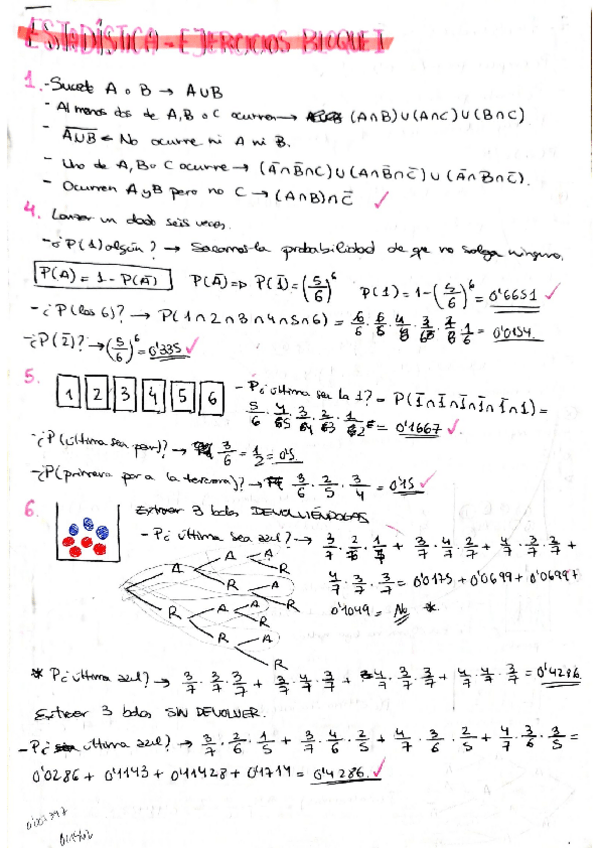 ESTADÍSTICA - EJERCICIOS BLOQUE I
1. - Sucede A o B → A∪B
- Al menos dos de A, B o C ocurren → (A∩B)∪(A∩C)∪(B∩C)
- A̅∪̅B̅ = No ocurre ni A ni B.
- Uno de A, B o C ocurre → (A̅∩B̅∩C)∪(A∩B̅∩C̅)∪(A̅∩B∩C̅).
- Ocurren A y B pero no C → (A∩B)∩C̅ ✓
4. Lanzar un dado seis veces.
- ¿P(1) algún? → Sacamos la probabilidad de que no salga ninguno.
P(A) = 1 - P(A̅) P(A̅) => P(1̅) = (5/6)^6 P(1) = 1 - (5/6)^6 = 0'6651 ✓
- ¿P(los 6)? → P(1∩2∩3∩4∩5∩6) =
- ¿P(2̅)? → (5/6)^6 = 0'335 ✓
5. 1 2 3 4 5 6 - P¿última sea la 1? = P(1̅∩1̅∩1̅∩1̅∩1̅∩1) =
= 0'1667 ✓
- ¿P(última sea par)? → 3/6 = 1/2 = 0'5.
- ¿P(primera par a la tercera)? → 3/6 · 2/5 · 3/4 = 0'15 ✓
6. Extraer 3 bolas DEVOLVIÉNDOLAS
- P¿última sea azul? → + 3/7 · 4/7 · 2/7 + 4/7 · 3/7 · 3/7 +
4/7 · 3/7 · 3/7 = 0'0175 + 0'0699 + 0'0699
A A A
R
R A
R
R A A
R
R A
R
0'1049 = No *
* P¿última azul? → 3/7 · 3/7 · 3/7 + 3/7 · 4/7 · 3/7 + 4/7 · 3/7 · 3/7 + 4/7 · 4/7 · 3/7 = 0'4286
Extraer 3 bolas SIN DEVOLVER.
- P¿última azul? → 3/7 · 2/6 · 1/5 + 3/7 · 4/6 · 2/5 + 4/7 · 3/6 · 2/5 + 4/7 · 3/6 · 3/5 =
0'0286 + 0'1143 + 0'11428 + 0'1714 = 0'4286. ✓